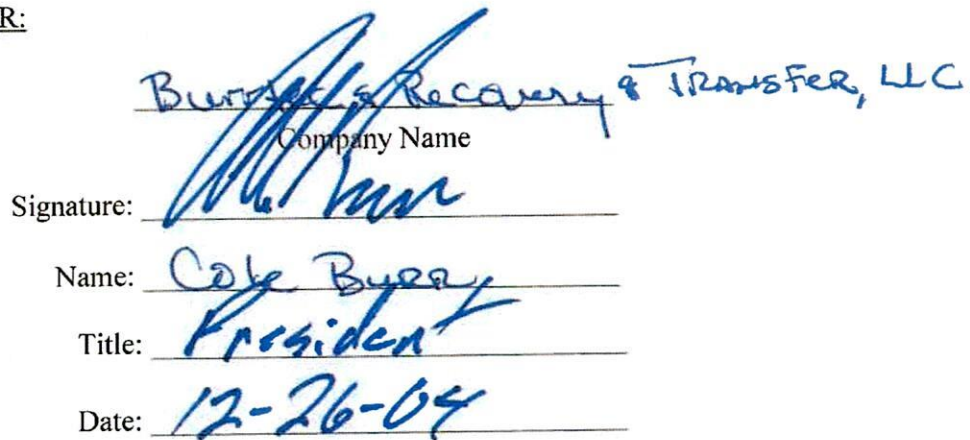 R:
Recovery & TRANSFER, LLC
Company Name
Signature:
Name: Cole Burr
Title: President
Date: 12-26-04